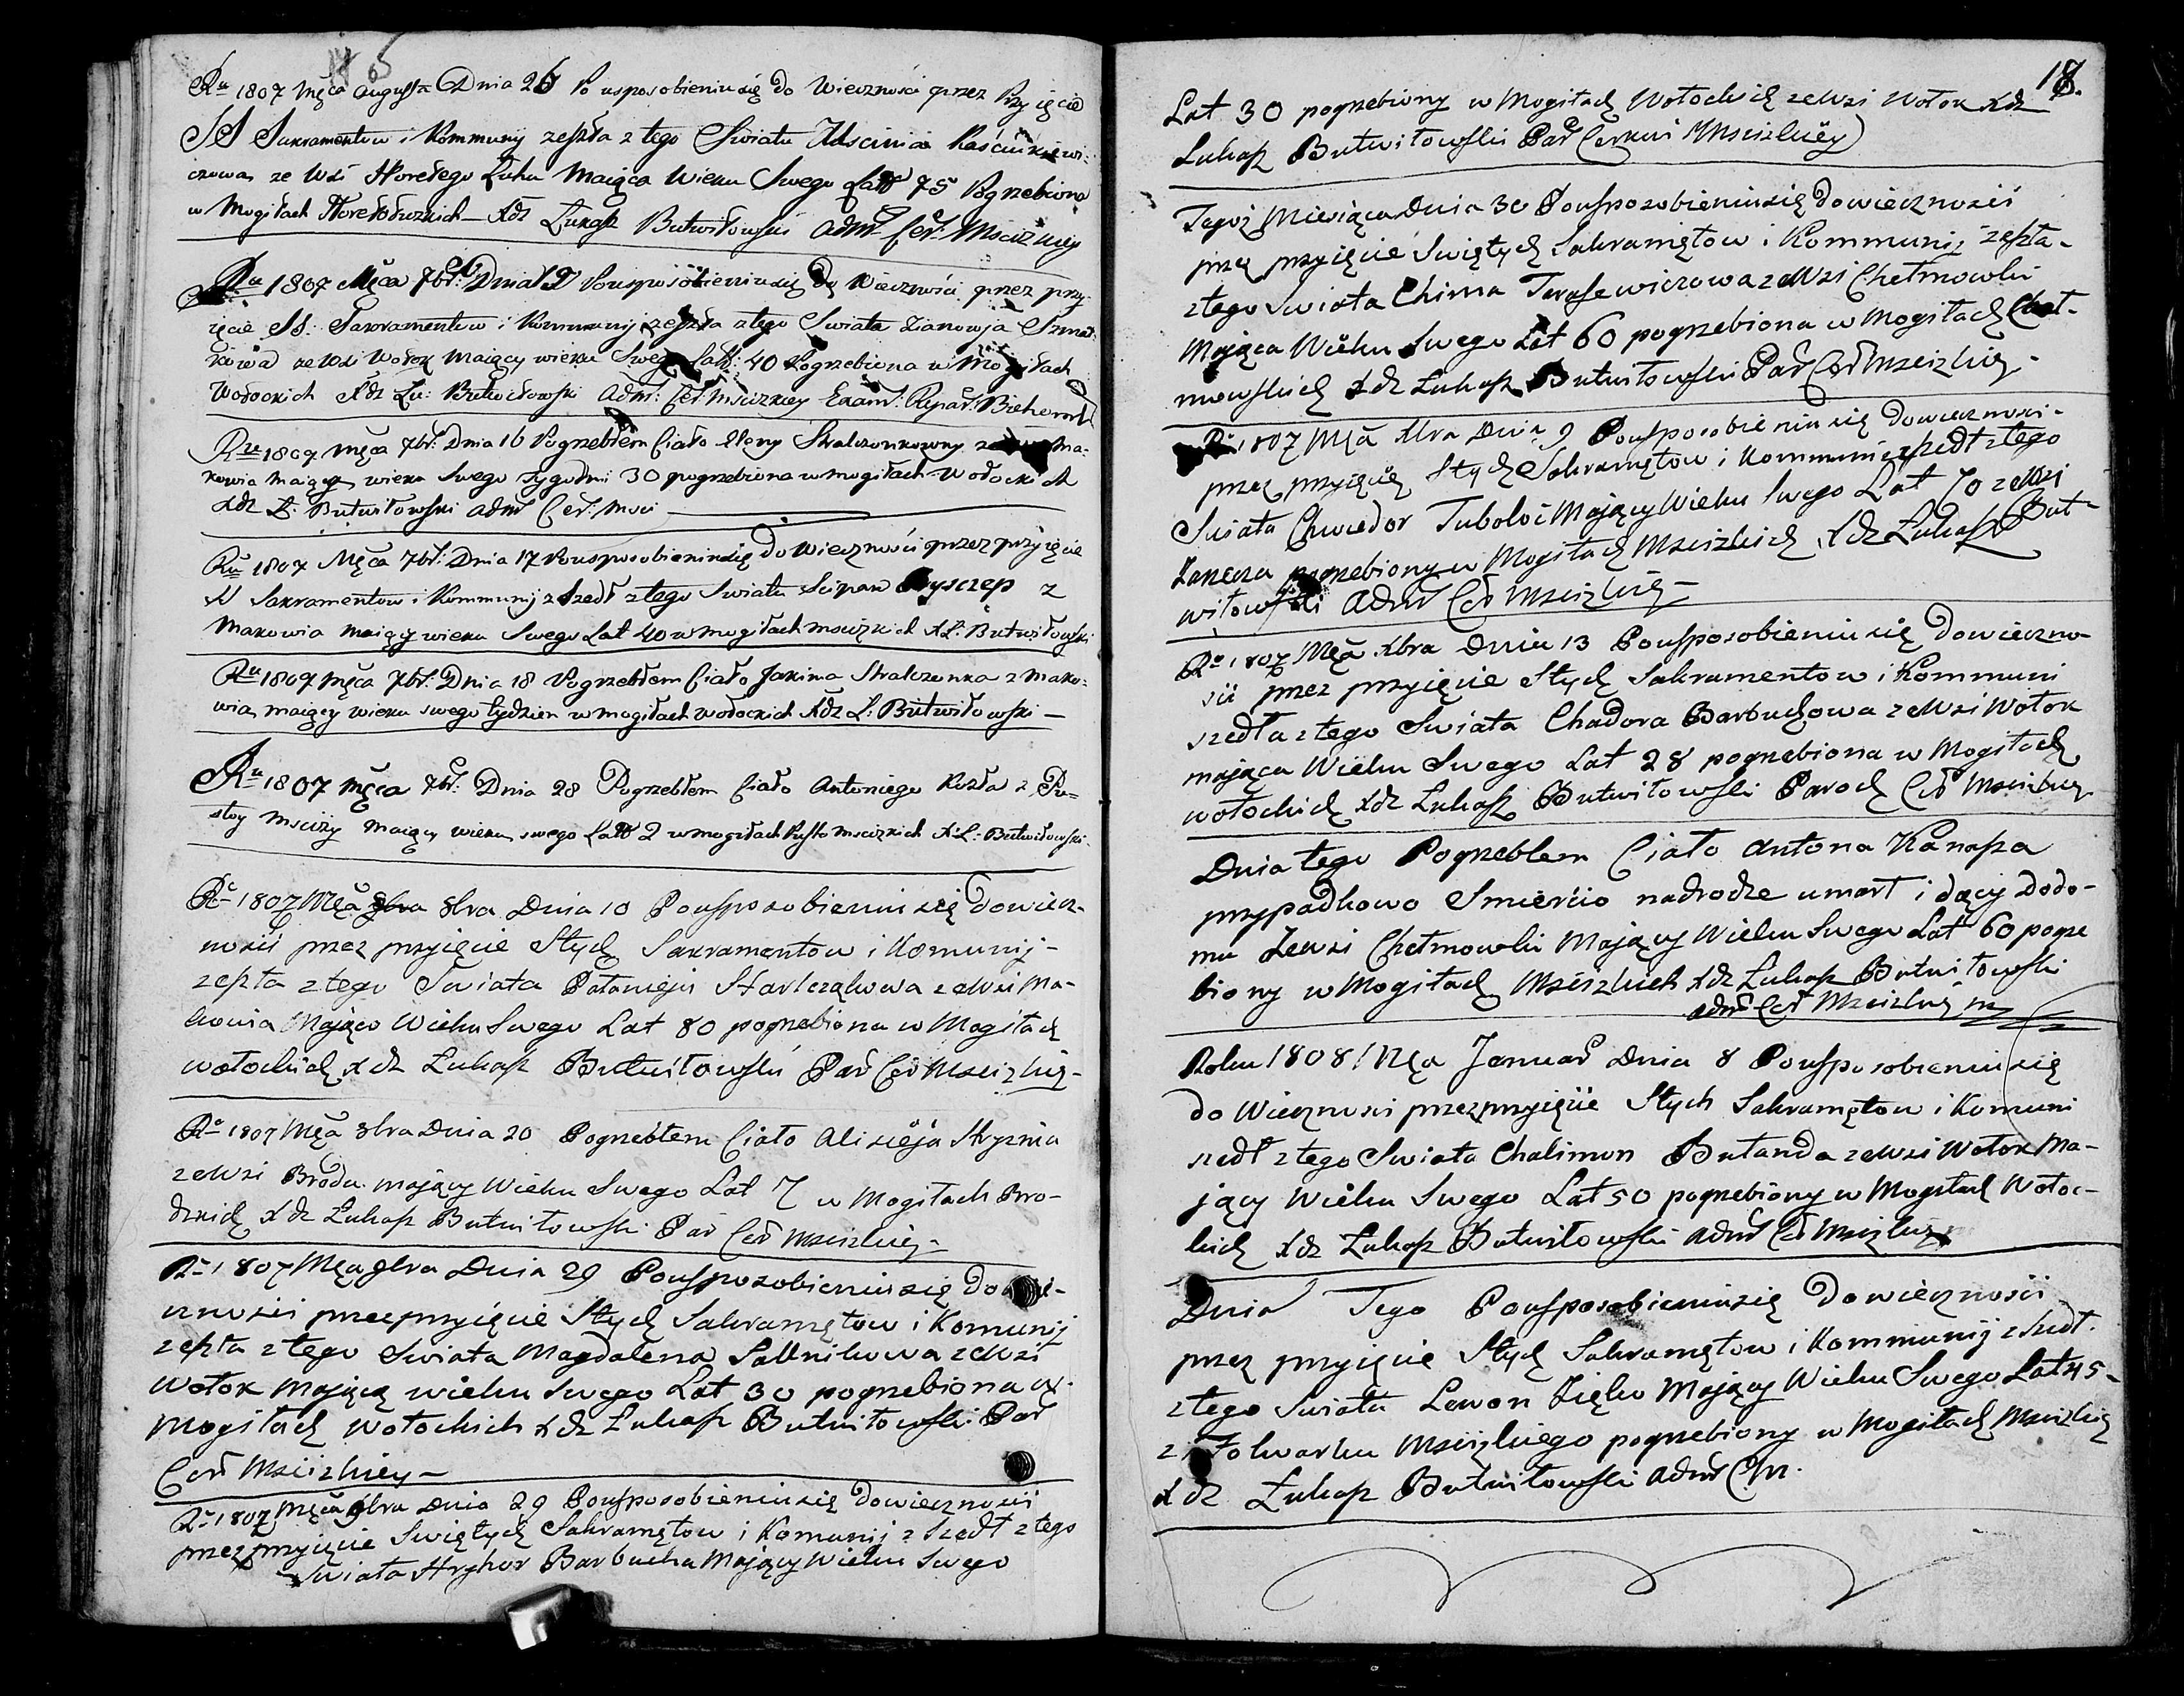 Ru 1807 Męca Augusta Dnia 26 Po usposobieniu się do Wieczności przez Przyięcie
SS Sakramentow i Kommunij zeszła z tego Swiata Justinia
ze Wsi Horełego Łuhu Maiąca Wieku Swego Latt 75 Pogrzebiona
w Mogiłach Horełołuzkich Xdz Łukasz Butwiłowski Adm: Cer: Mscizkiey
Ru 1807 Męca 7br: Dnia 12 Po usposobieniu się Do Wieczności przez przy-
ięcie SS: Sakramentow i Kommunij zeszła z tego Swiata Zianowja
ze Wsi Wołok Maiący wieku Swego Latt: 40 Pogrzebiona w Mogiłach
Wołockich Xdz Łu: Butwiłowski Adm: Cer: Mscizkiey
Ru 1807 Męca 7br: Dnia 16 Pogrzebłem Ciało Eleny Ma-
kowia maiącey wieku Swego tygodni 30 pogrzebiona w mogiłach Wołockich
Xdz Ł: Butwiłowski Adm Cer: Msci
Ru 1807 Męca 7br: Dnia 17 Po usposobieniu się do Wieczności przez przyięcie
SS Sakramentow i Kommunij zszedł z tego Swiata Scipan z
Makowia maiący wieku Swego Lat 40 w mogiłach mscizkich X Ł: Butwiłowski
Ru 1807 Męca 7br: Dnia 18 Pogrzebłem Ciało Jakima Stralczonka z Mako-
wia maiący wieku swego tydzien w mogiłach wołockich Xdz Ł: Butwiłowski
Ru 1807 Męca 7br: Dnia 28 Pogrzebłem Ciało Antoniego Kozła z Pu-
stoy Mscizy maiący wieku swego Latt 2 w mogiłach Pusto mscizkich X Ł: Butwiłowski
Ro 1807 Męca 8bra Dnia 10 Po usposobieniu się Do wiecz-
nosci przez przyięcie Stych Sakramentow i Komunij
zeszła z tego Swiata Pałanieja ze Wsi Ma-
kowia Mająca Wieku Swego Lat 80 pogrzebiona w Mogiłach
wołockich xdz Łukasz Butwiłowski Par Cer Mscizkiey
Ro 1807 Męca 8bra Dnia 20 Pogrzebłem Ciało Alixieja Hryznia
ze Wsi Brodu mający Wieku Swego Lat 7 w Mogiłach Bro-
dzkich xdz Łukasz Butwiłowski Par Cer Mscizkiey
Ro 1807 Męca 9bra Dnia 29 Po usposobieniu się Do wie-
cznosci przez przyięcie Stych Sakramętow i Komunij
zeszła z tego Swiata Magdalena ze Wsi
Wołok Mająca wieku Swego Lat 30 pogrzebiona w
Mogiłach Wołockich xdz Łukasz Butwiłowski Par
Cer Mscizkiey
Ro 1807 Męca 9bra Dnia 29 Po usposobieniu się Do wiecznosci
przez przyięcie Swiętych Sakramętow i Komunij zszedł z tego
Swiata Hryhor Barbucha Mający Wieku Swego
18.
Lat 30 pogrzebiony w Mogiłach Wołockich ze Wsi Wołok Xdz
Łukasz Butwiłowski Par Cerkwi Mscizkiey
Tegoż Miesiąca Dnia 30 Po usposobieniu się do wiecznosci
przez przyięcie Swiętych Sakramętow i Kommunij zeszła
z tego Swiata Chima Tarasewiczowa ze Wsi Chełmowki
Mająca Wieku Swego Lat 60 pogrzebiona w Mogiłach Cheł-
mowskich xdz Łukasz Butwiłowski Par Cer Mscizkiey
Ro 1807 Męca Xbra Dnia 9 Po usposobieniu się Do wiecznosci
przez przyięcie Stych Sakramętow i Kommunij zszedł z tego
Swiata Chwiedor Tuboloi Mający Wieku Swego Lat 70 ze Wsi
Zarzecza pogrzebiony w Mogiłach Mscizkich xdz Łukasz But-
wiłowski Adm Cer Mscizkiey
Ro 1807 Męca Xbra Dnia 13 Po usposobieniu się Do wieczno-
sci przez przyięcie Stych Sakramentow i Kommuni
szedła z tego Swiata Chadora Barbuchowa ze Wsi Wołok
mająca Wieku Swego Lat 28 pogrzebiona w Mogiłach
wołockich xdz Łukasz Butwiłowski Paroch Cer Mscizkiey
Dnia tego Pogrzebłem Ciało Antona Kanasza
przypadkowo Smiercio na drodze umarł idący do do-
mu ze Wsi Chełmowki Mający Wieku Swego Lat 60 pogrze
biony w Mogiłach Mscizkich xdz Łukasz Butwiłowski
Adm Cer Mscizkiey
Roku 1808 Męca Januar Dnia 8 Po usposobieniu się
do Wiecznosci przez przyięcie Stych Sakramętow i Komuni
szedł z tego Swiata Chalimon Butanda ze Wsi Wołok Ma-
jący Wieku Swego Lat 50 pogrzebiony w Mogiłach Wołoc-
kich xdz Łukasz Butwiłowski Adm Cer Mscizkiey
Dnia Tego Po usposobieniu się Do wiecznosci
przez przyięcie Stych Sakramętow i Kommunij zszedł
z tego Swiata Lewon Mający Wieku Swego Lat 45
z Folwarku Mscizkiego pogrzebiony w Mogiłach Mscizkich
xdz Łukasz Butwiłowski Adm